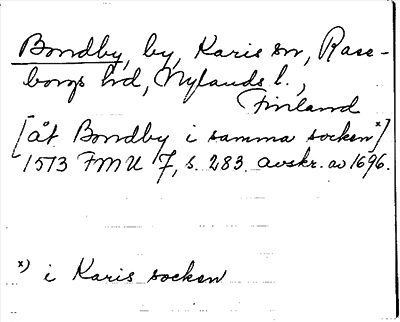 Bondby, by, Karis sn, Rase-
borgs hd, Nylands l.,
Finland
[åt Bondby i samma socken x)]
1513 FMU 7, s. 283. avskr. av 1696.
x) i Karis socken